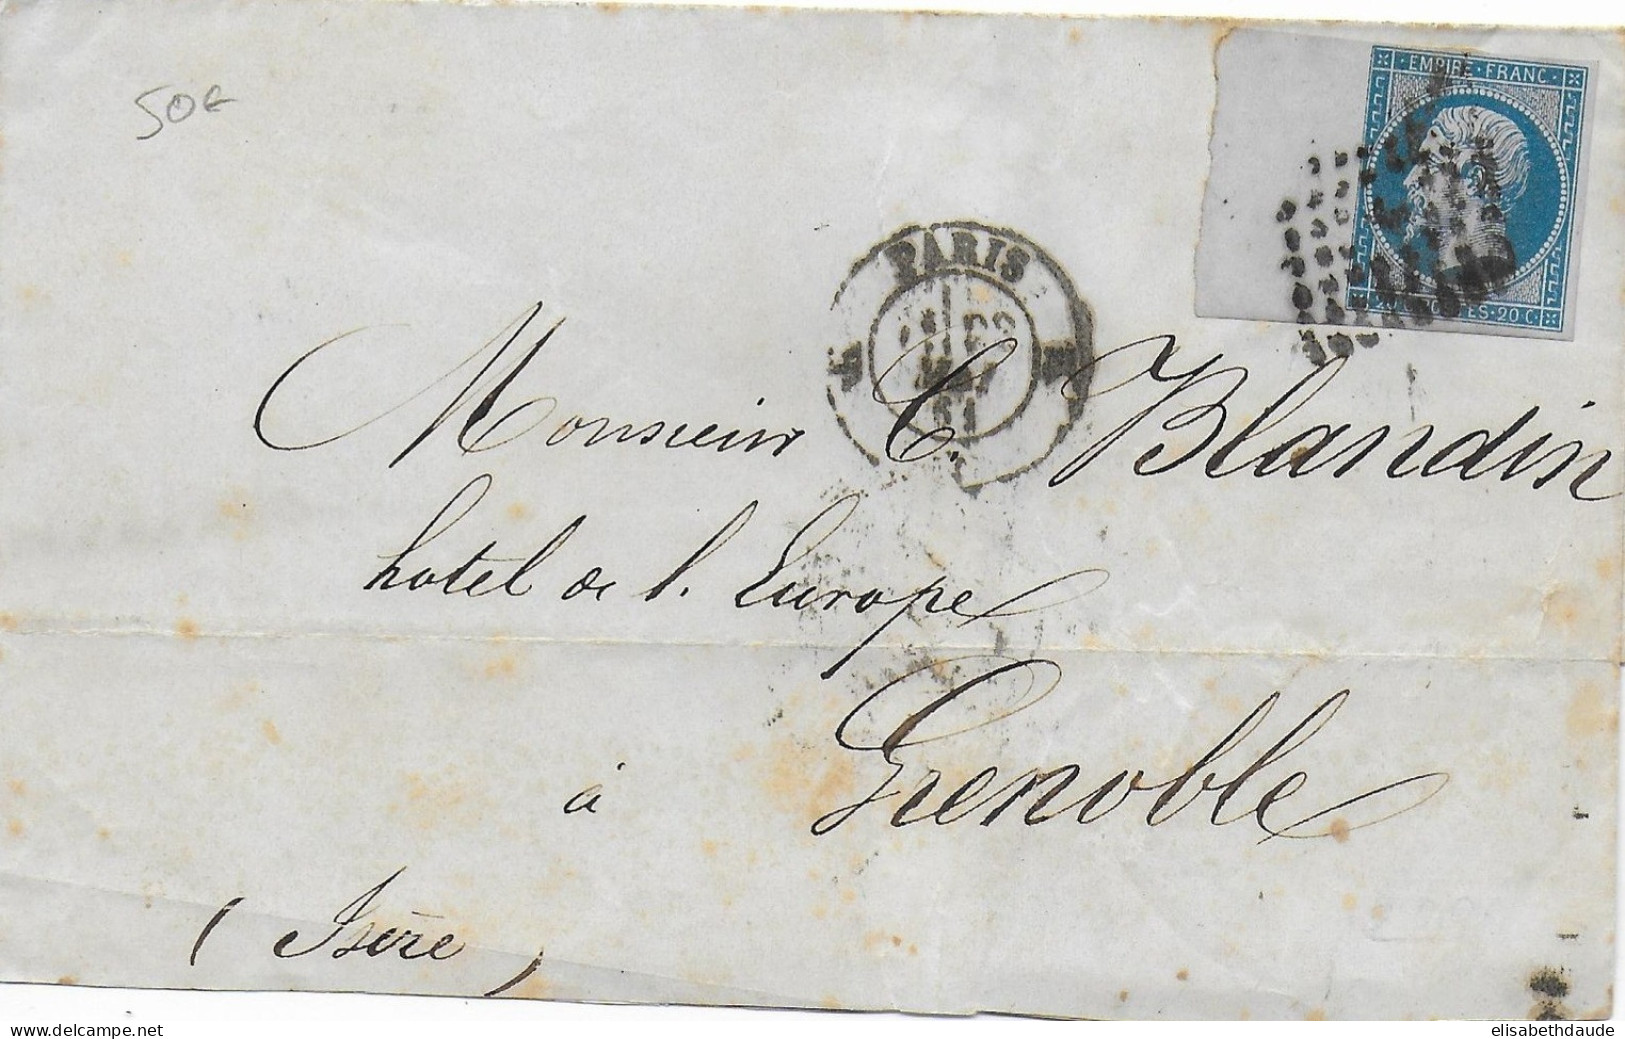 50€
EMPIRE FRANC
20 C. POSTES. 20 C.
PARIS
61
Monsieur C. Blandin
hotel de l'Europe
à Grenoble
(Isère)
www.delcampe.net
elisabethdaude